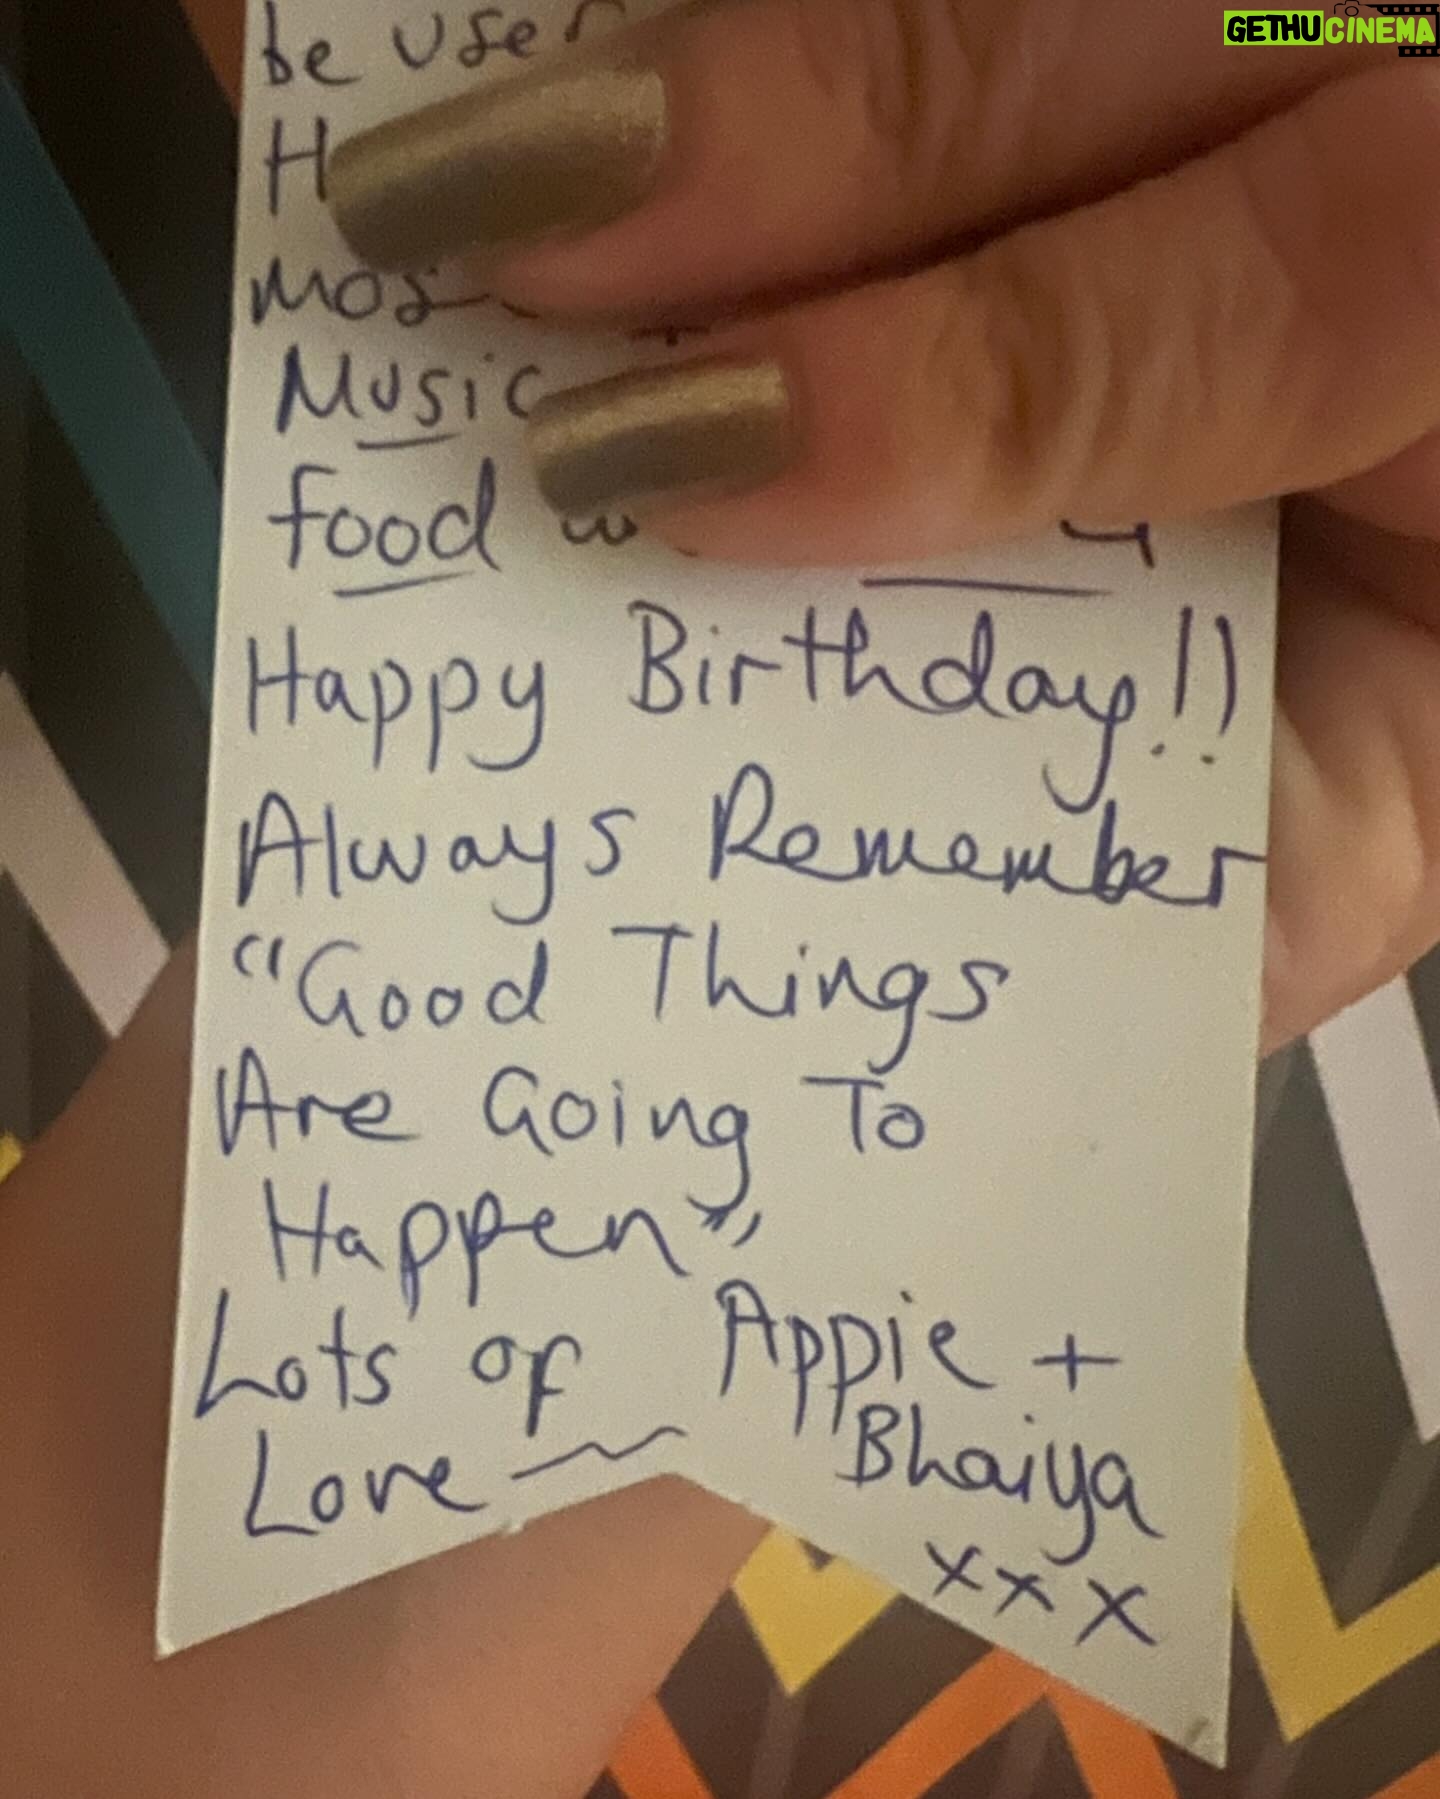 GETHUCINEMA
be
H
Music
food
Happy Birthday!!
Always Remember
"Good Things
Are Going To
Happen"
Lots of Appie +
Love Bhaiya
xxx